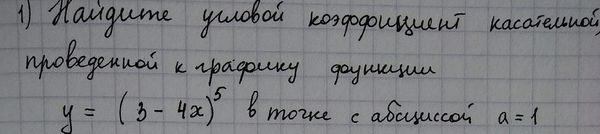 1) Найдите угловой коэффициент касательной,
проведенной к графику функции
y = (3 - 4x)^5 в точке с абсциссой a = 1